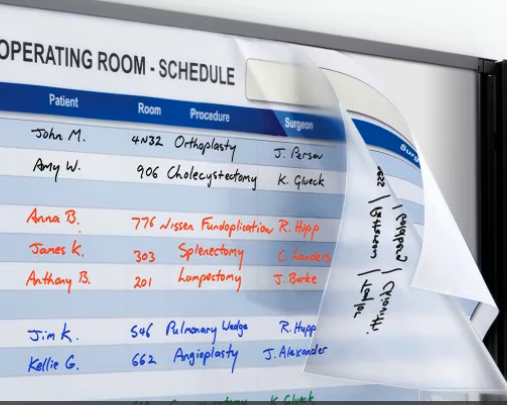 OPERATING ROOM - SCHEDULE
Patient Room Procedure Surgeon
John M. 4N32 Orthoplasty J. Persav
Amy W. 906 Cholecystectomy K. Gluck
Anna B. 776 Nissen Fundoplication R. Hupp
James K. 303 Splenectomy C. Landers
Anthony B. 201 Lumpectomy J. Burke
Jim K. 546 Pulmonary Wedge R. Hupp
Kellie G. 662 Angioplasty J. Alexander
K. Gluck